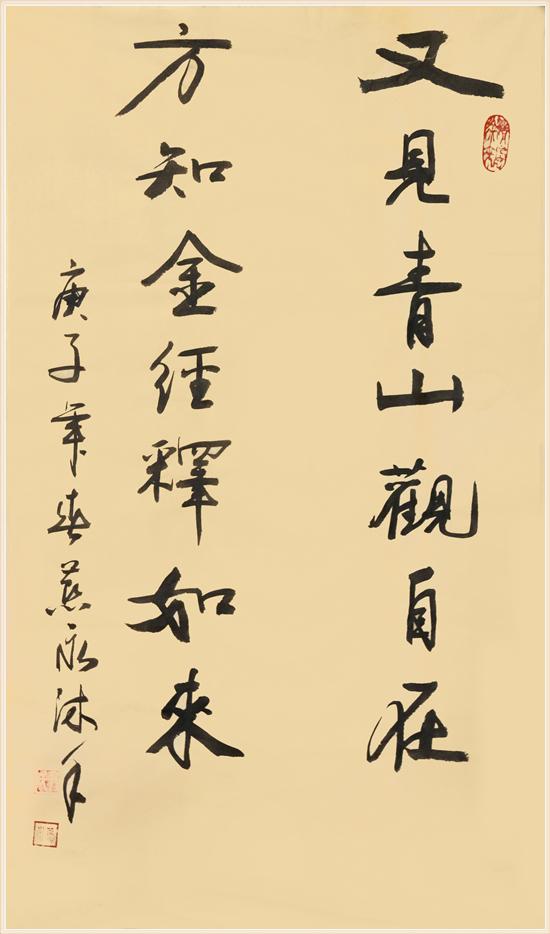 又見青山觀自在
方知金經釋如來
庚子年春燕永沐手